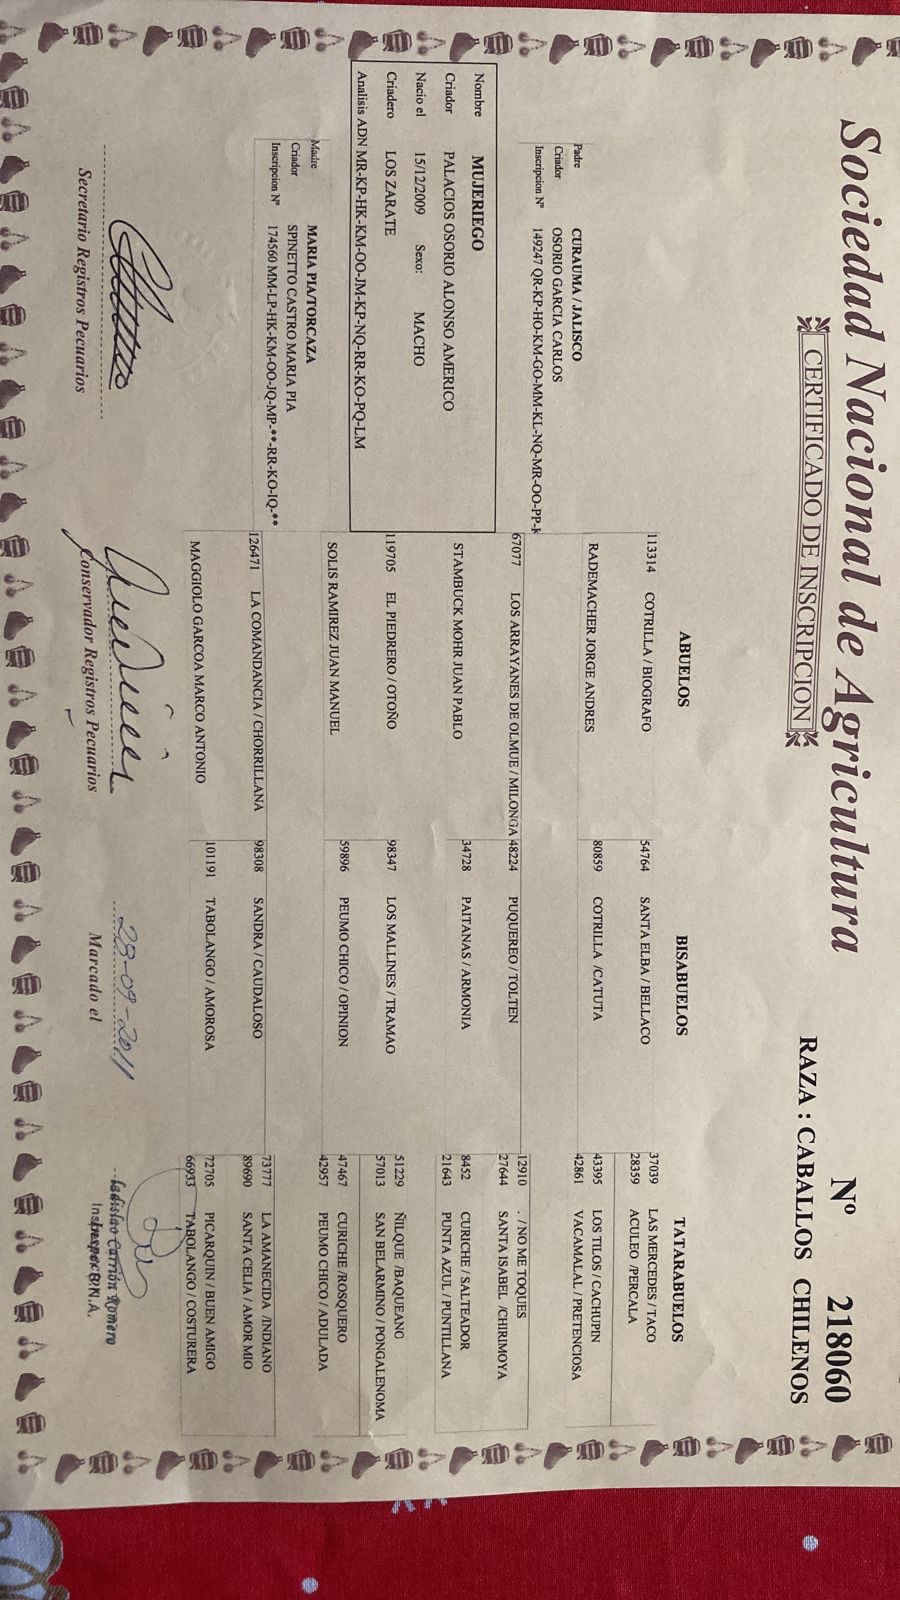 Sociedad Nacional de Agricultura
Nº 218060
CERTIFICADO DE INSCRIPCION
RAZA : CABALLOS CHILENOS
ABUELOS
BISABUELOS
TATARABUELOS
Padre CURAUMA / JALISCO
Criador OSORIO GARCIA CARLOS
Inscripcion Nº 149247 QR-KP-HO-KM-GO-MM-KL-NQ-MR-OO-PP-K
Nombre MUJERIEGO
Criador PALACIOS OSORIO ALONSO AMERICO
Nacio el 15/12/2009 Sexo: MACHO
Criadero LOS ZARATE
Analisis ADN MR-KP-HK-KM-OO-JM-KP-NQ-RR-KO-PQ-LM
Madre MARIA PIA/TORCAZA
Criador SPINETTO CASTRO MARIA PIA
Inscripcion Nº 174560 MM-LP-HK-KM-OO-JQ-MP-**-RR-KO-IQ-**
113314 COTRILLA / BIOGRAFO
RADEMACHER JORGE ANDRES
67077 LOS ARRAYANES DE OLMUE / MILONGA
STAMBUCK MOHR JUAN PABLO
119705 EL PIEDRERO / OTOÑO
SOLIS RAMIREZ JUAN MANUEL
126471 LA COMANDANCIA / CHORRILLANA
MAGGIOLO GARCOA MARCO ANTONIO
54764 SANTA ELBA / BELLACO
80859 COTRILLA /CATUTA
48224 PUQUEREO / TOLTEN
34728 PAITANAS / ARMONIA
98347 LOS MALLINES / TRAMAO
59896 PEUMO CHICO / OPINION
98308 SANDRA / CAUDALOSO
101191 TABOLANGO / AMOROSA
37039 LAS MERCEDES / TACO
28359 ACULEO /PERCALA
43395 LOS TILOS / CACHUPIN
42861 VACAMALAL / PRETENCIOSA
12910 . / NO ME TOQUES
27644 SANTA ISABEL /CHIRIMOYA
8452 CURICHE / SALTEADOR
21643 PUNTA AZUL / PUNTILLANA
51229 ÑILQUE /BAQUEANO
57013 SAN BELARMINO / PONGALENOMA
47467 CURICHE /ROSQUERO
42957 PEUMO CHICO / ADULADA
73777 LA AMANECIDA /INDIANO
89690 SANTA CELIA / AMOR MIO
72705 PICARQUIN / BUEN AMIGO
66933 TABOLANGO / COSTURERA
Secretario Registros Pecuarios
Conservador Registros Pecuarios
28-09-2011
Marcado el
Ladislao Carrión Romero